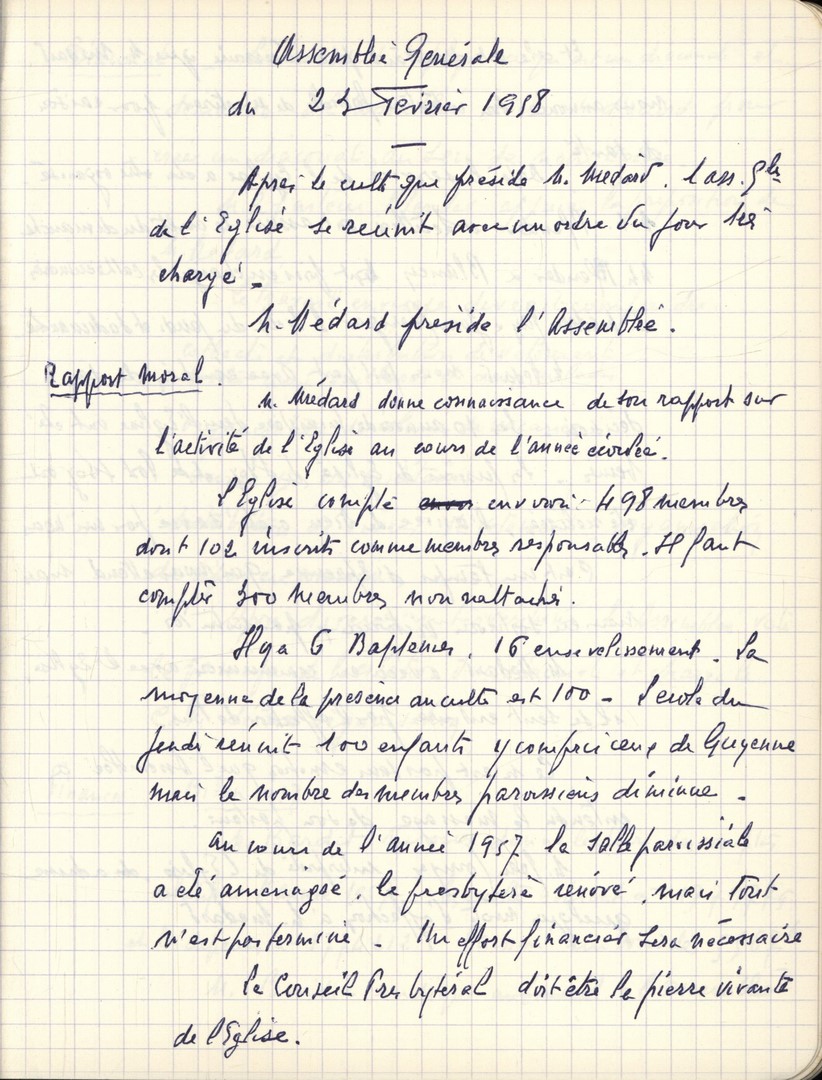 Assemblée Générale
du 23 Février 1958
Après le culte que préside M. Médard. l'ass. Gle
de l'Eglise se réunit avec un ordre du jour très
chargé.
M. Médard préside l'Assemblée.
Rapport moral.
M. Médard donne connaissance de son rapport sur
l'activité de l'Eglise au cours de l'année écoulée.
L'Eglise compte environ 498 membres
dont 102 inscrits comme membres responsables. Il faut
compter 300 membres non rattachés.
Il y a 6 Baptêmes, 16 ensevelissement. La
moyenne de la présence au culte est 100 - L'école du
Jeudi réunit 100 enfants y compris ceux de Guyenne
mais le nombre des membres paroissiens diminue.
Au cours de l'année 1957 la salle paroissiale
a été aménagée, le presbytère rénové, mais tout
n'est pas terminé - Un effort financier sera nécessaire
Le Conseil Presbytéral doit être la pierre vivante
de l'Eglise.